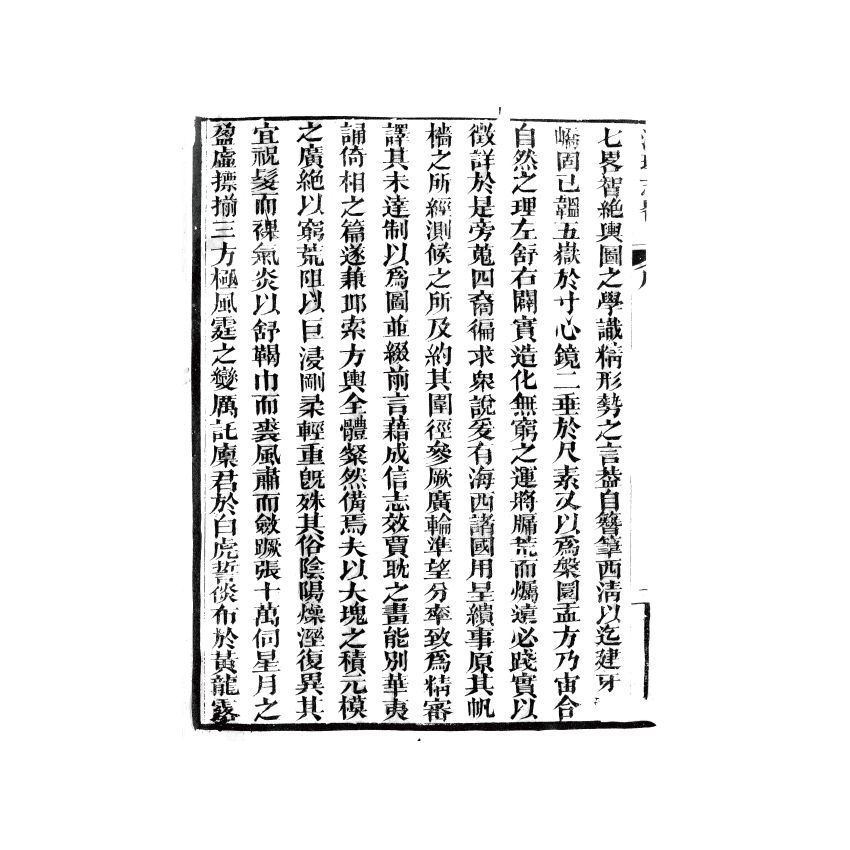 七畧智絶輿圖之學識精形勢之言葢自簪筆西淸以迄建牙
嶠固已韞五嶽於寸心鏡二垂於尺素又以爲槃圜盂方乃宙合
自然之理左舒右闢實造化無窮之運將牖荒而爥遠必踐實以
徴詳於是旁蒐四裔徧求衆說爰有海西諸國用呈繢事原其帆
檣之所經測候之所及約其圍徑參厥廣輪準望分率致爲精審
譯其未達制以爲圖並綴前言藉成信志效賈耽之畫能别華夷
誦倚相之篇遂兼邱索方輿全體粲然備焉夫以大塊之積元模
之廣絶以窮荒阻以巨浸剛柔輕重旣殊其俗陰陽燥溼復異其
宜祝髮而裸氣炎以舒鞨巾而裘風肅而斂蹶張十萬伺星月之
盈虛摽搠三方極風霆之變厲託廩君於白虎誓倓布於黃龍露